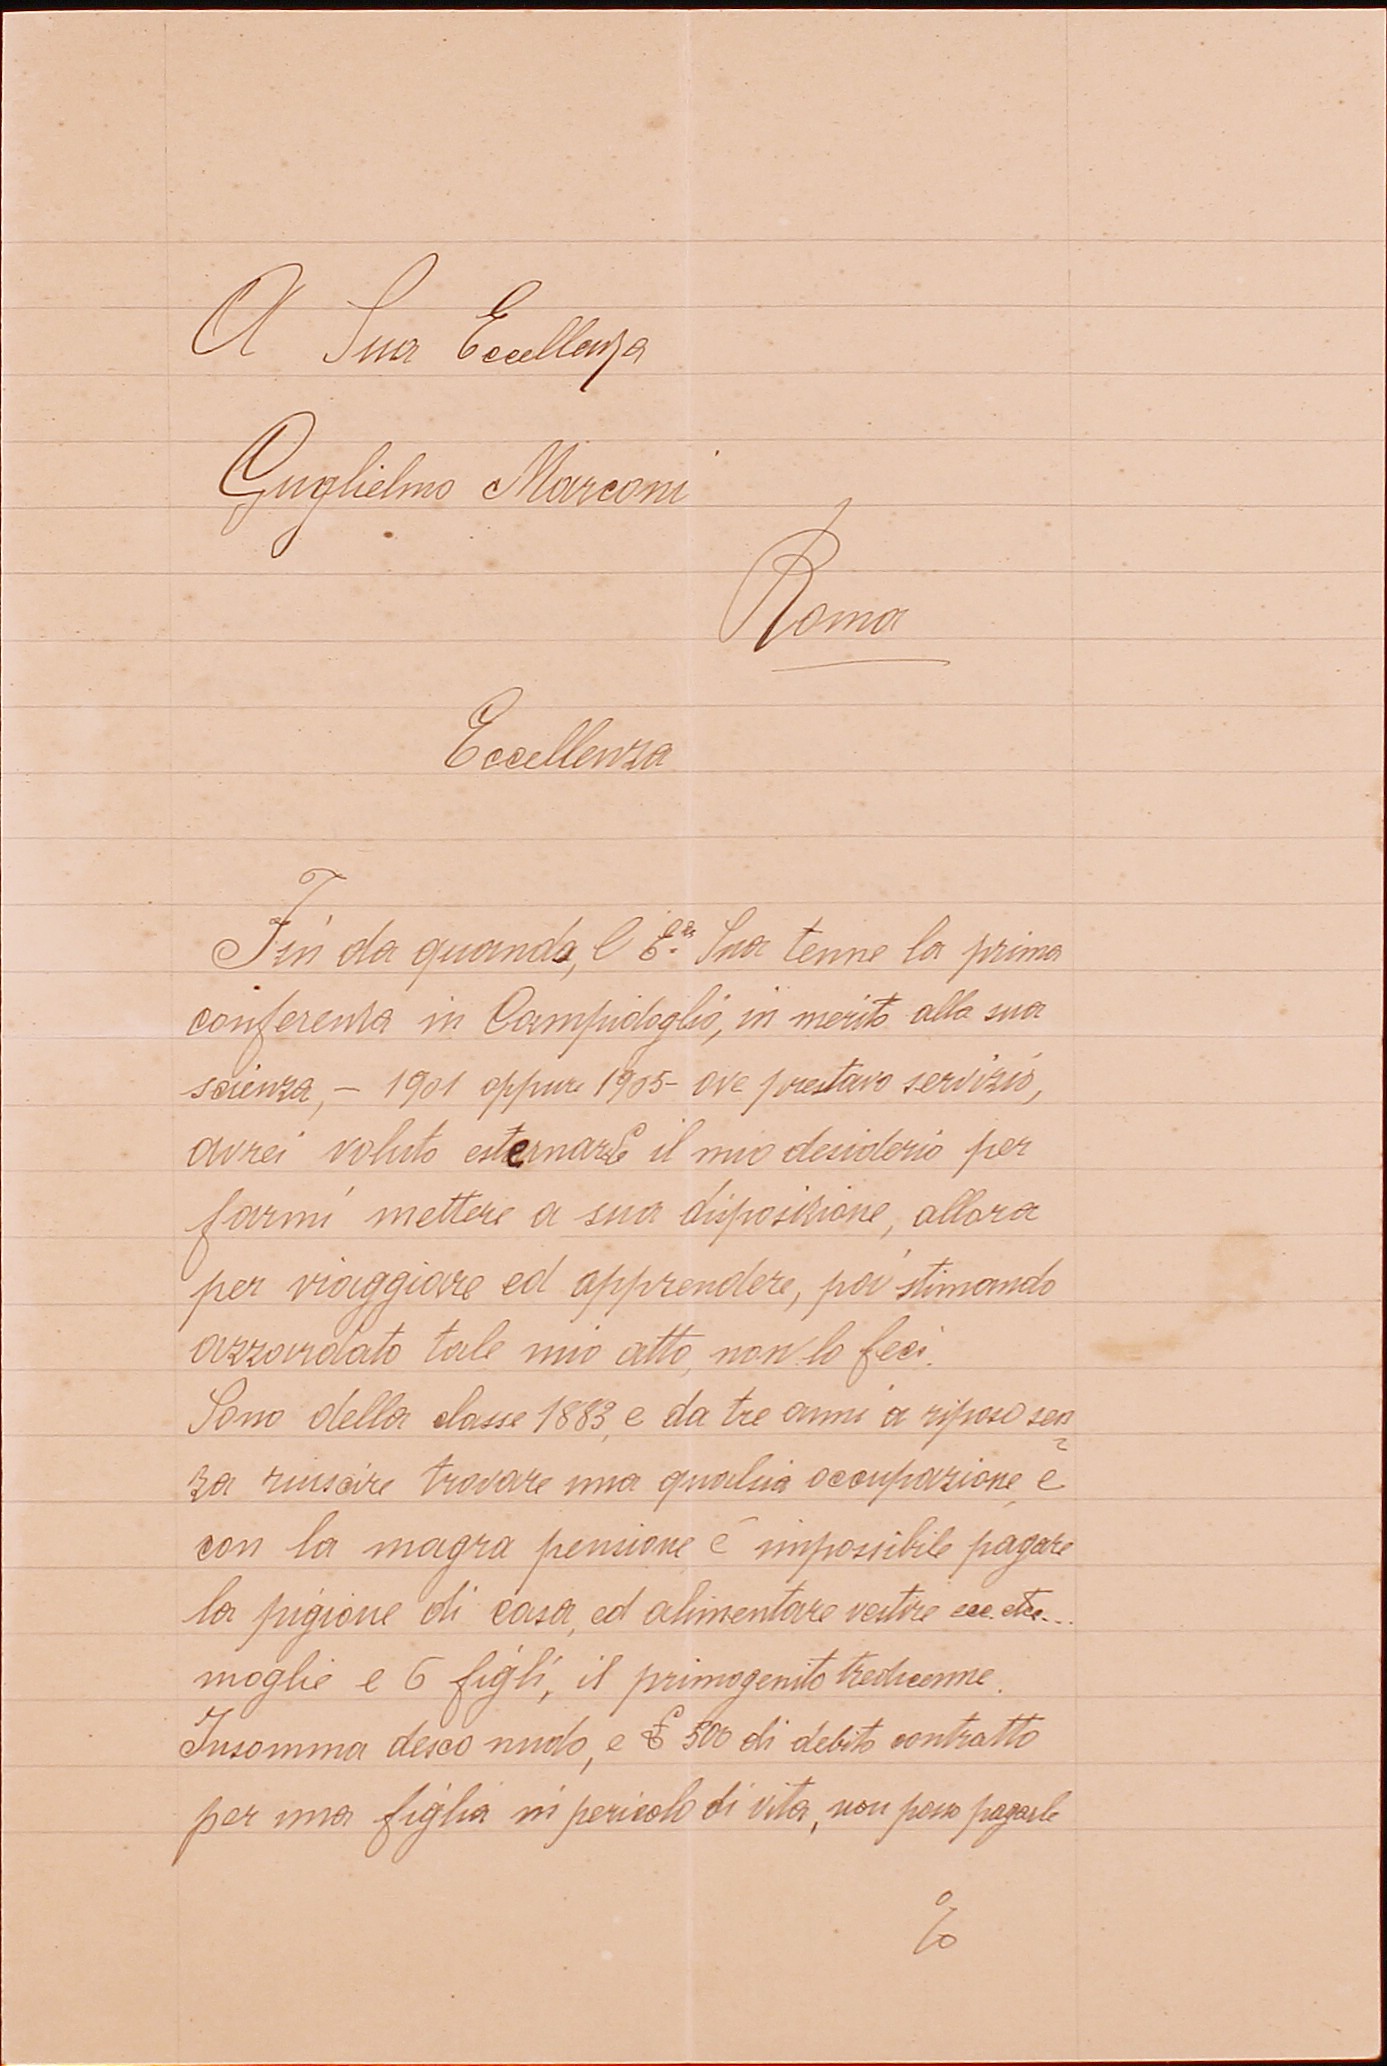 A Sua Eccellenza
Guglielmo Marconi
Roma
Eccellenza
Fin da quando, l'E.za Sua tenne la prima
conferenza in Campidoglio, in merito alla sua
scienza, - 1901 oppure 1905 - ove prestavo servizio,
avrei voluto esternarLe il mio desiderio per
farmi mettere a sua disposizione, allora
per viaggiare ed apprendere, poi stimando
azzardato tale mio atto, non lo feci.
Sono della classe 1883, e da tre anni a riposo sen
za riuscire trovare una qualsia occupazione, e
con la magra pensione è impossibile pagare
la pigione di casa, ed alimentare vestire ecc. etc....
moglie e 6 figli, il primogenito tredicenne.
Insomma desco nudo, e £ 500 di debito contratto
per una figlia in pericolo di vita, non posso pagarle
E